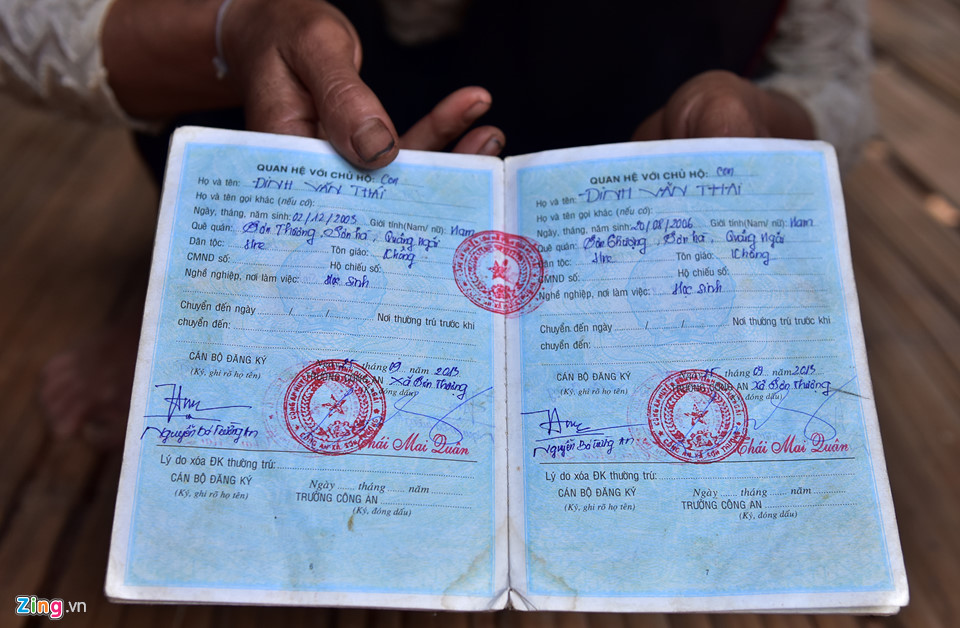 QUAN HỆ VỚI CHỦ HỘ: Con
Họ và tên: ĐINH VĂN THÁI
Họ và tên gọi khác (nếu có):
Ngày, tháng, năm sinh: 02/12/2005 Giới tính(Nam/ nữ): Nam
Quê quán: Sơn Thượng, Sơn hà, Quảng Ngãi
Dân tộc: Hre Tôn giáo: Không
CMND số: Hộ chiếu số:
Nghề nghiệp, nơi làm việc: Học sinh
Chuyển đến ngày / / Nơi thường trú trước khi
chuyển đến:
25 tháng 09 năm 2013
CÁN BỘ ĐĂNG KÝ TRƯỞNG CÔNG AN Xã Sơn Thượng
(Ký, ghi rõ họ tên) đóng dấu)
Thái Mai Quân
Lý do xóa ĐK thường trú:
Ngày ...... tháng ...... năm ......
CÁN BỘ ĐĂNG KÝ TRƯỞNG CÔNG AN
(Ký, ghi rõ họ tên) (Ký, đóng dấu)
6
QUAN HỆ VỚI CHỦ HỘ: Con
Họ và tên: ĐINH VĂN THAI
Họ và tên gọi khác (nếu có)
Ngày, tháng, năm sinh: 20/08/2006 Giới tính(Nam/ nữ): Nam
Quê quán: Sơn Thượng, Sơn hà, Quảng Ngãi
Dân tộc: Hre Tôn giáo: Không
CMND số: Hộ chiếu số:
Nghề nghiệp, nơi làm việc: Học sinh
Chuyển đến ngày / / Nơi thường trú trước khi
chuyển đến:
25 tháng 09 năm 2013
CÁN BỘ ĐĂNG KÝ TRƯỞNG CÔNG AN Xã Sơn Thượng
(Ký, ghi rõ họ tên) đóng dấu)
Thái Mai Quân
Lý do xóa ĐK thường trú:
Ngày ...... tháng ...... năm ......
CÁN BỘ ĐĂNG KÝ TRƯỞNG CÔNG AN
(Ký, ghi rõ họ tên) (Ký, đóng dấu)
7
Zing.vn